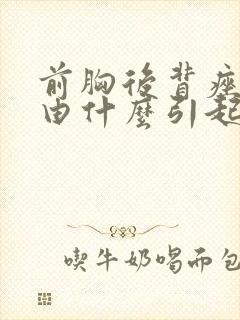 前胸後背痤
由什麼引起
喫牛奶喝而包